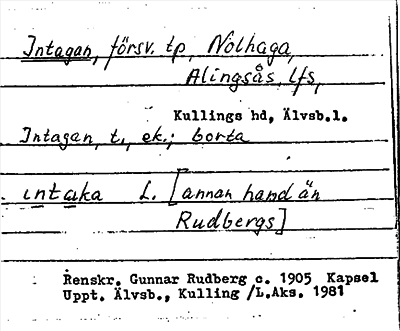 Intagan, försv. tp, Nolhaga,
Alingsås, lfs,
Kullings hd, Älvsb.l.
Intagan, t., ek.; borta
intaka L. [annan hand än
Rudbergs]
Renskr. Gunnar Rudberg c. 1905 Kapsel
Uppt. Älvsb., Kulling /L.Aks. 1981